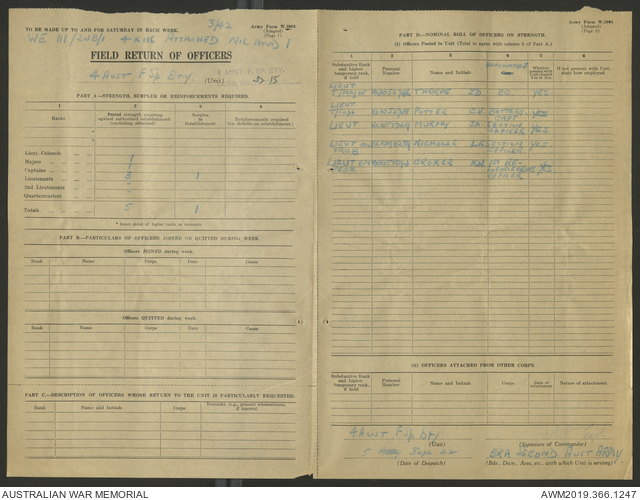 3/42
Army Form W.3008
(Adapted)
(Page 1)
TO BE MADE UP TO AND FOR SATURDAY IN EACH WEEK.
WE III/248/1 4 ATTACHED NIL AND 1
FIELD RETURN OF OFFICERS
4 Aust F Sp Bty. (Unit)
PART A—STRENGTH, SURPLUS OR REINFORCEMENTS REQUIRED.
1 2 3 4
Ranks
Posted strength counting against authorised establishment (excluding attached)
Surplus to Establishment
Reinforcements required (for deficits on establishment)
Lieut. Colonels
Majors 1
Captains 1
Lieutenants 3 1
2nd Lieutenants
Quartermasters
Totals 5 1
PART B—PARTICULARS OF OFFICERS JOINED OR QUITTED DURING WEEK.
Officers JOINED during week.
Rank Name Corps Date Cause
Officers QUITTED during week.
Rank Name Corps Date Cause
PART C—DESCRIPTION OF OFFICERS WHOSE RETURN TO THE UNIT IS PARTICULARLY REQUESTED.
Rank Name and Initials Corps Remarks (e.g., present whereabouts, if known)
Army Form W.3008
(Adapted)
(Page 2)
PART D—NOMINAL ROLL OF OFFICERS ON STRENGTH.
(i) Officers Posted to Unit (Total to agree with column 2 of Part A.)
1 2 3 4 5 6
Substantive Rank and higher temporary rank, if held
Personal Number
Name and Initials
Corps
If not present with Unit, state how employed
LIEUT
T/MAJOR THORPE JD BC YES
LIEUT
T/CAPT POTTER BATTERY CAPT YES
LIEUT MURPHY SECTION OFFICER YES
LIEUT NICHOLLS SECTION OFFICER YES
LIEUT CROKER YES
(ii) OFFICERS ATTACHED FROM OTHER CORPS.
Substantive Rank and higher temporary rank, if held
Personal Number
Name and Initials
Corps
Date of Attachment
Nature of attachment
4 Aust F Sp Bty.
(Unit)
(Signature of Commander)
5 Sept 42
BRA SECOND AUST ARMY
(Date of Despatch)
(Bde., Divn., Area, etc., with which Unit is serving)
AUSTRALIAN WAR MEMORIAL
AWM2019.366.1247